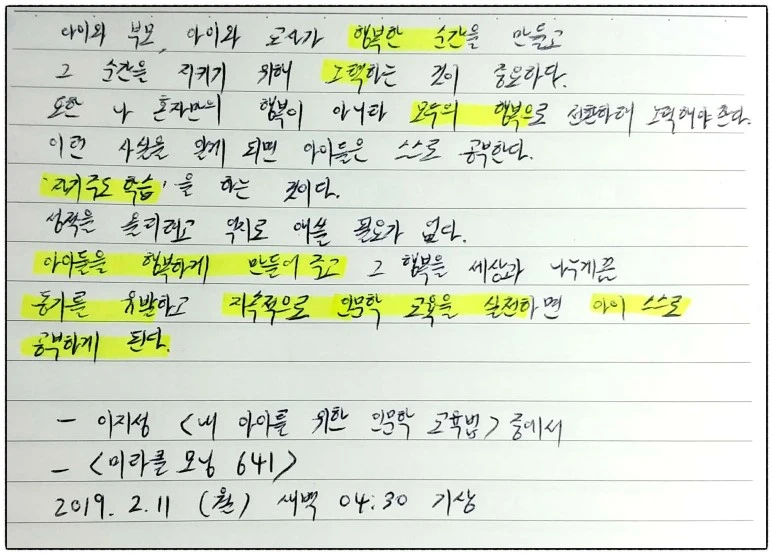 아이와 부모, 아이와 교사가 행복한 순간을 만들고
그 순간을 지키기 위해 노력하는 것이 중요하다.
또한 나 혼자만의 행복이 아니라 모두의 행복으로 전환하려 노력해야 한다.
이런 사실을 알게 되면 아이들은 스스로 공부한다.
'자기주도 학습'을 하는 것이다.
성적을 올리려고 억지로 애쓸 필요가 없다.
아이들을 행복하게 만들어 주고 그 행복을 세상과 나누게끔
동기를 유발하고 지속적으로 인문학 교육을 실천하면 아이 스스로
공부하게 된다.
- 이지성 <내 아이를 위한 인문학 교육법> 중에서
- <미라클 모닝 641>
2019. 2.11 (월) 새벽 04:30 기상